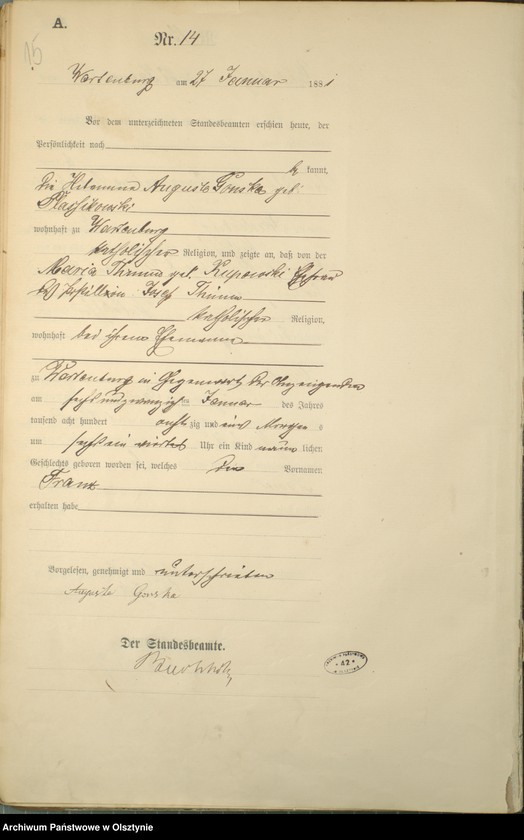 A.
15
Nr. 14
Wartenburg am 27 Januar 1881
Vor dem unterzeichneten Standesbeamten erschien heute, der
Persönlichkeit nach
be kannt,
die Hebamme Auguste Gonska geb.
wohnhaft zu Wartenburg
katholischer Religion, und zeigte an, daß von der
Maria Thimm geb. Ehefrau
des Postillion Josef Thimm
katholischer Religion,
wohnhaft bei ihrem Ehemanne
zu Wartenburg in Gegenwart der Anzeigenden
am sechsundzwanzigsten Januar des Jahres
tausend acht hundert achtzig und eins Morgens
um sechs ein viertel Uhr ein Kind männlichen
Geschlechts geboren worden sei, welches den Vornamen
Franz
erhalten habe
Vorgelesen, genehmigt und unterschrieben
Auguste Gonska
Der Standesbeamte.
42
Archiwum Państwowe w Olsztynie